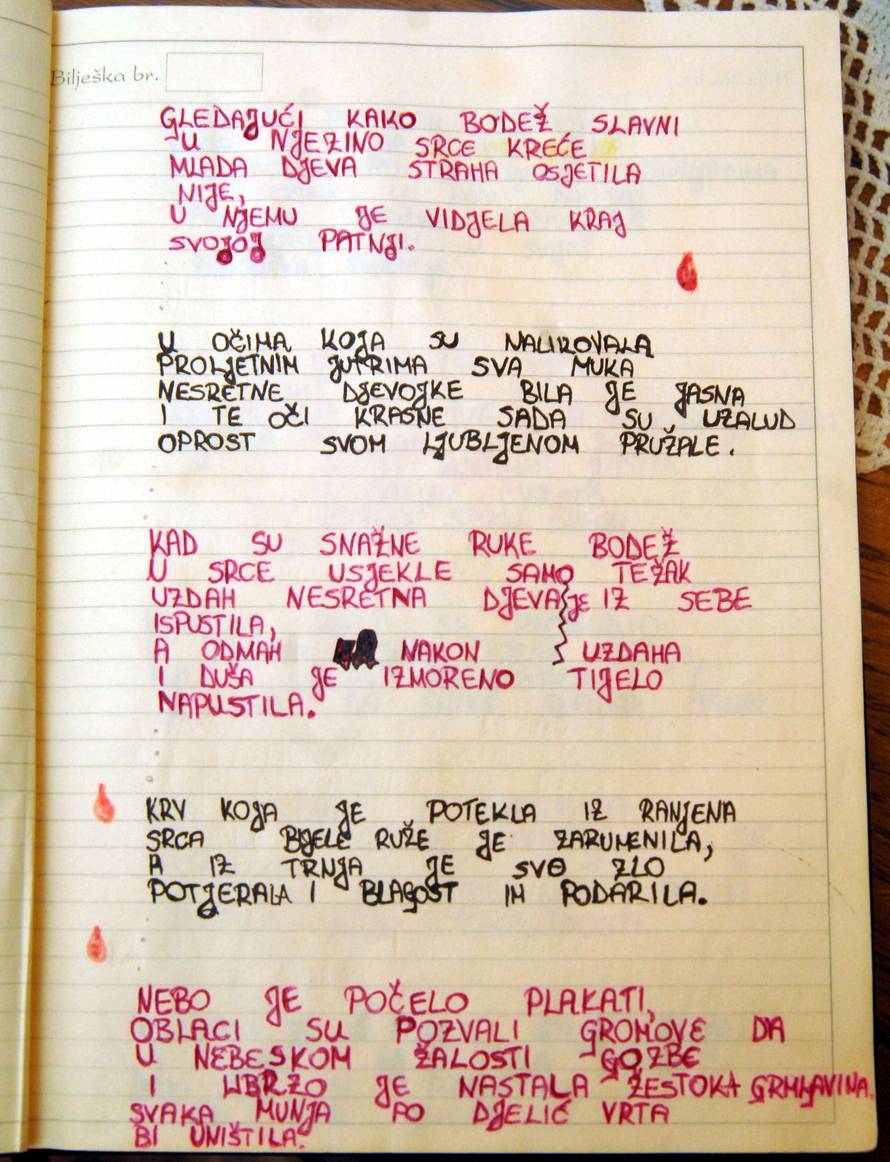 Bilješka br.
GLEDAJUĆI KAKO BODEŽ SLAVNI
U NJEZINO SRCE KREĆE
MLADA DJEVA STRAHA OSJETILA
NIJE,
U NJEMU JE VIDJELA KRAJ
SVOJOJ PATNJI.
U OČIMA KOJA SU NALIKOVALA
PROLJETNIM JUTRIMA SVA MUKA
NESRETNE DJEVOJKE BILA JE JASNA
I TE OČI KRASNE SADA SU UZALUD
OPROST SVOM LJUBLJENOM PRUŽALE.
KAD SU SNAŽNE RUKE BODEŽ
U SRCE USJEKLE SAMO TEŽAK
UZDAH NESRETNA DJEVA JE IZ SEBE
ISPUSTILA,
A ODMAH NAKON UZDAHA
I DUŠA JE IZMORENO TIJELO
NAPUSTILA.
KRV KOJA JE POTEKLA IZ RANJENA
SRCA BIJELE RUŽE JE ZARUMENILA,
A IZ TRNJA JE SVO ZLO
POTJERALA I BLAGOST IM PODARILA.
NEBO JE POČELO PLAKATI,
OBLACI SU POZVALI GROMOVE DA
U NEBESKOM ŽALOSTI GOZBE
I UBRZO JE NASTALA ŽESTOKA GRMLJAVINA.
SVAKA MUNJA PO DJELIĆ VRTA
BI UNIŠTILA.